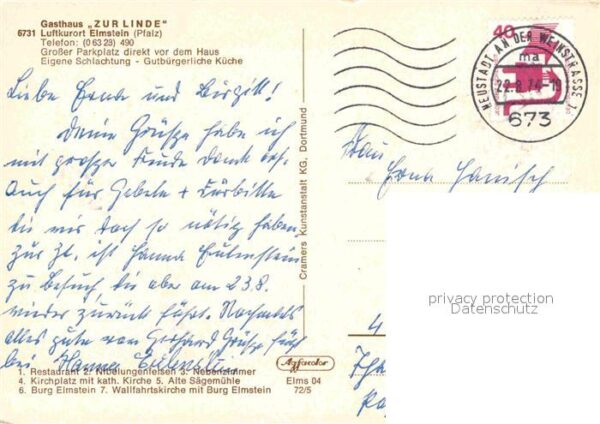 Gasthaus „ZUR LINDE"
6731 Luftkurort Elmstein (Pfalz)
Telefon: (0 63 28) 490
Großer Parkplatz direkt vor dem Haus
Eigene Schlachtung - Gutbürgerliche Küche
Liebe Erna und Birgitt!
Deine Grüße habe ich
mit großer Freude dank erh.
Auch für Gebete + Fürbitte
die wir doch so nötig haben.
Zur Zt. ist Hanna Eulenstein
zu Besuch die aber am 23.8.
wieder zurück fährt. Nochmals
alles gute von Grüße
bei Hanna Eulenstein
1. Restaurant 2. Nibelungenfelsen 3. Nebenzimmer
4. Kirchplatz mit kath. Kirche 5. Alte Sägemühle
6. Burg Elmstein 7. Wallfahrtskirche mit Burg Elmstein
Agfacolor
Elms 04
72/5
Cramers Kunstanstalt KG, Dortmund
40
NEUSTADT AN DER WEINSTRASSE 1
ma
22.8.74-19
673
Frau
Erna Hanisch
4
privacy protection
Datenschutz